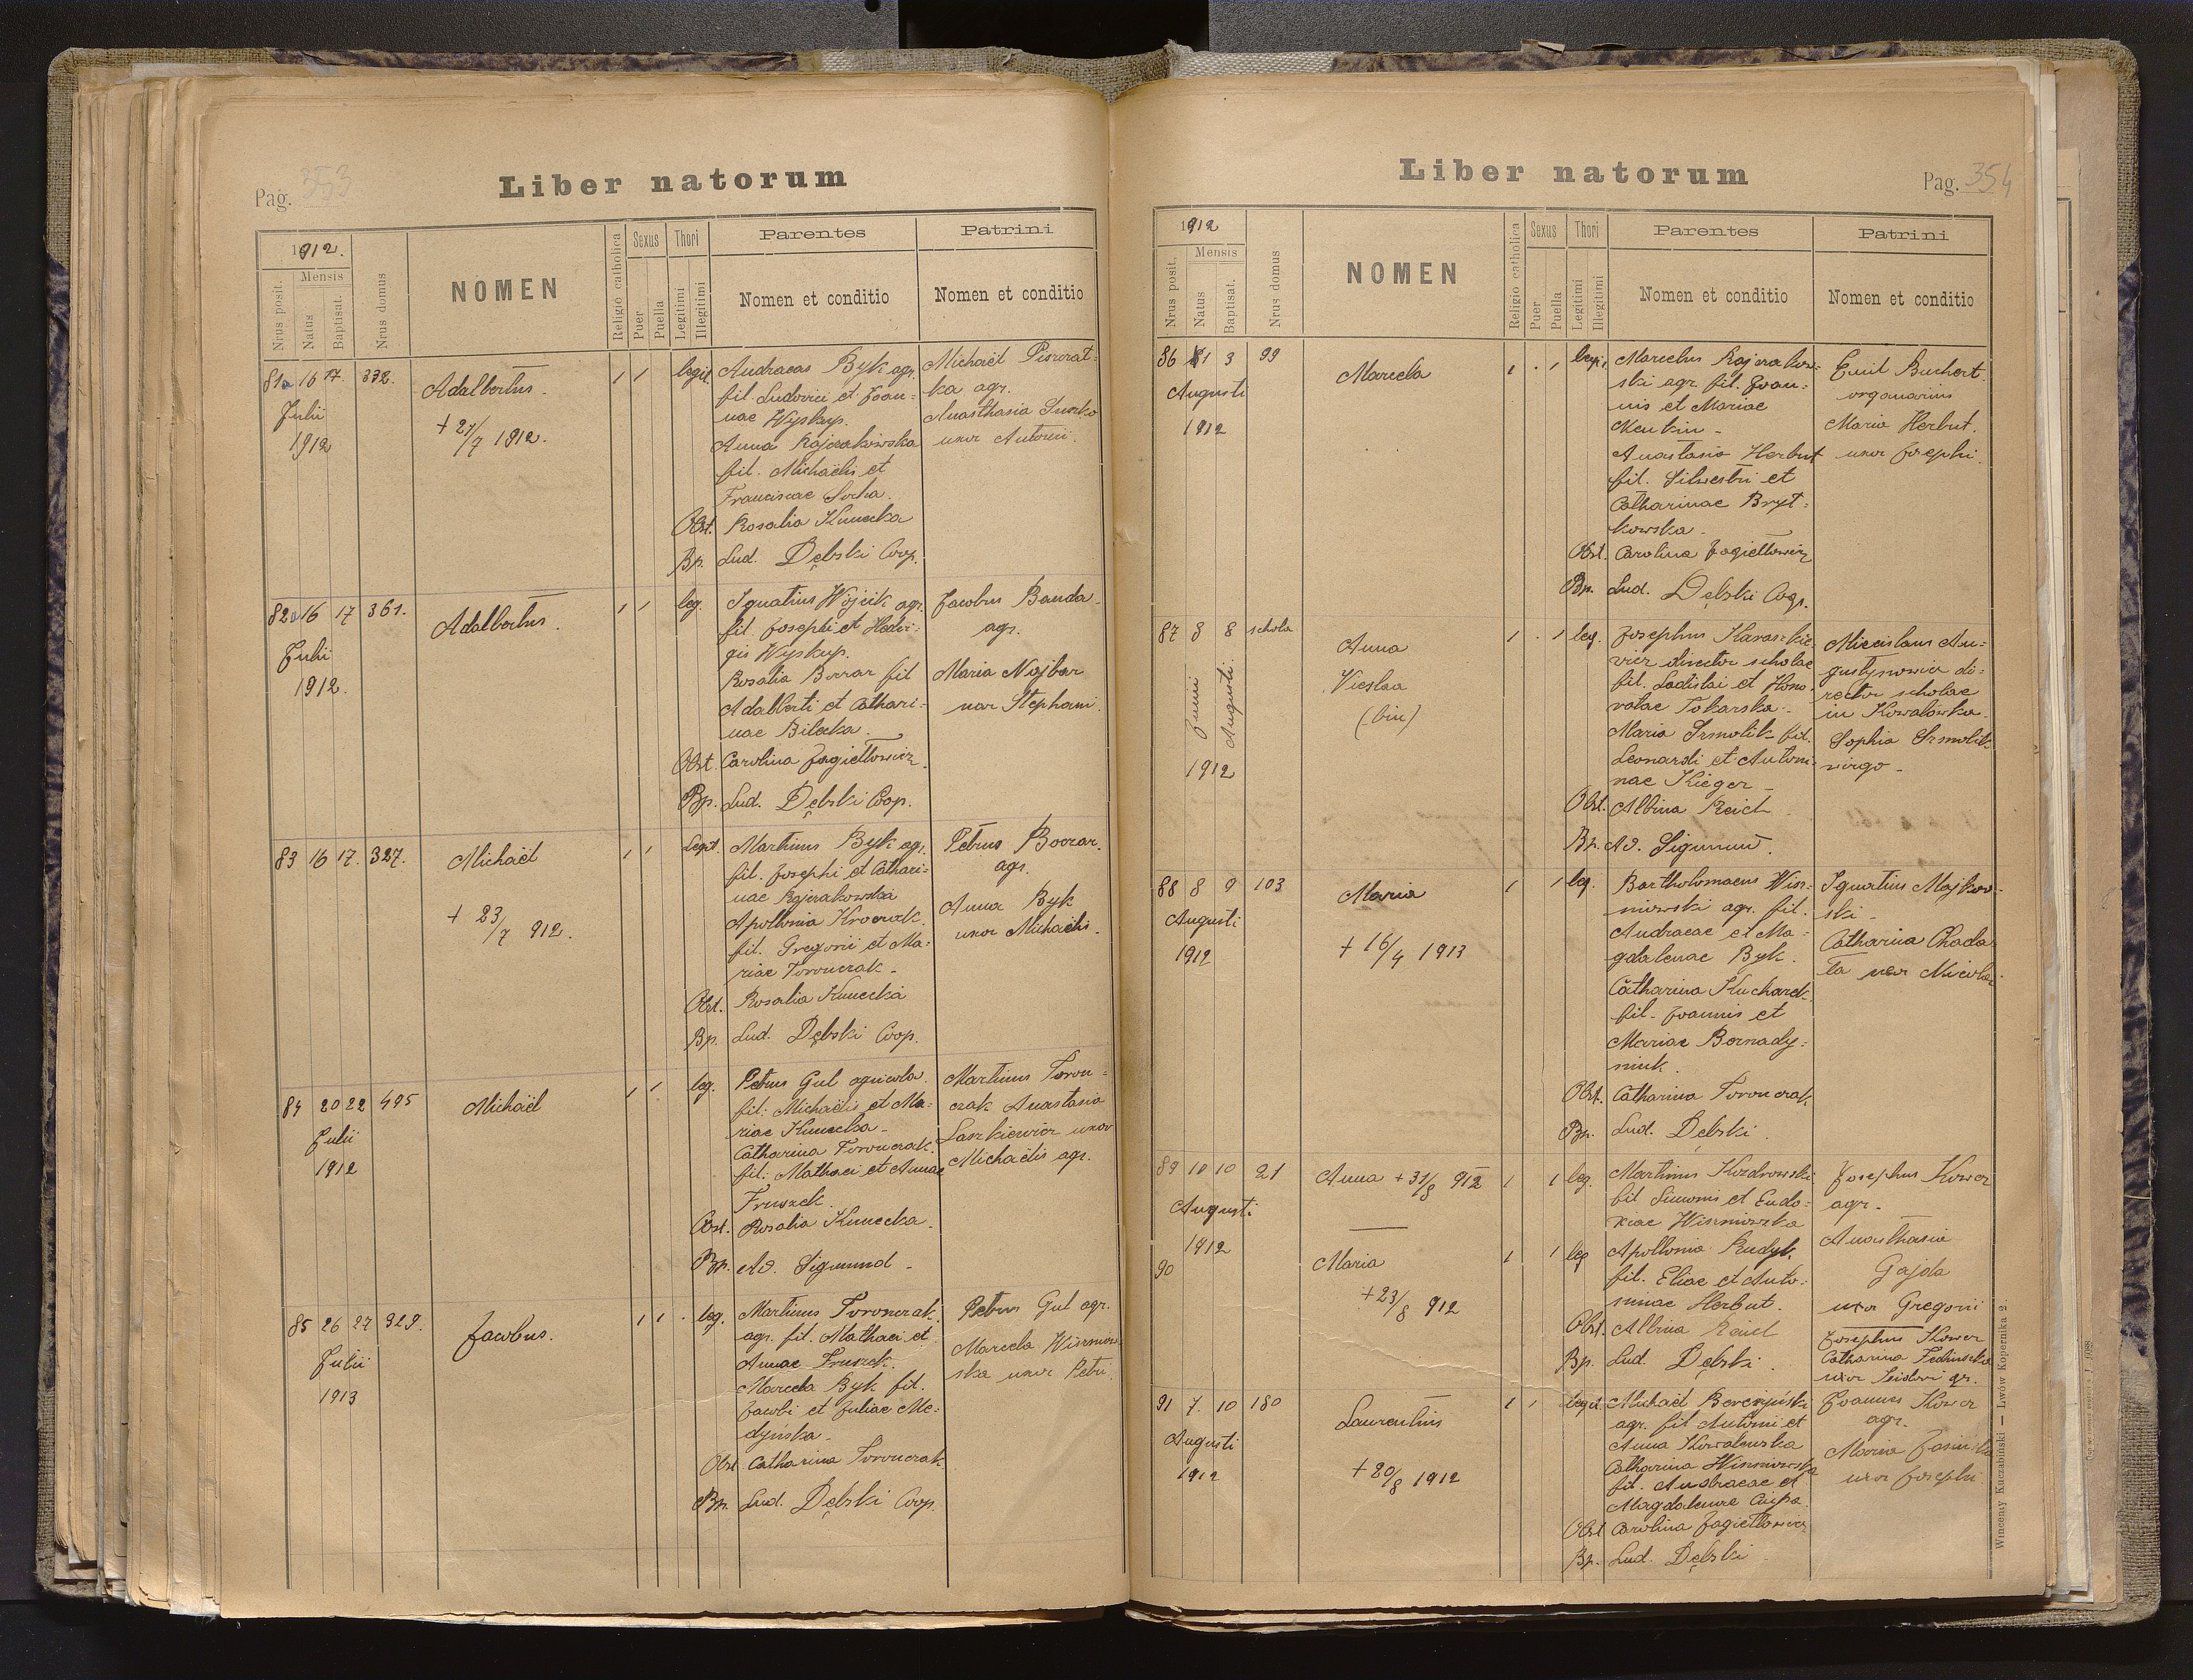 Pag. 353
Liber natorum
1912.
Mensis
Nrus posit.
Natus
Baptisat.
Nrus domus
NOMEN
Religio catholica
Sexus
Puer
Puella
Thori
Legitimi
Illegitimi
Parentes
Nomen et conditio
Patrini
Nomen et conditio
81a 16 17. 332.
Julii
1912
Adalbertus.
+ 27/7 1912.
1 1
legit.
Andraeas Byk agr.
fil. Ludovici et Joan-
nae Wyskup.
Anna Kojzakowska
fil. Michaëlis et
Franciscae Socha.
Obst. Rosalia Kunecka
Bp. Lud. Dębski Coop.
Michaël
ka agr.
Anasthasia
uxor Antonii.
82a 16 17 361.
Julii
1912.
Adalbertus.
1 1
leg.
Ignatius Wójcik agr.
fil. Josephi et Hedvi-
gis Wyskup.
Rosalia fil
Adalberti et Cathari-
nae
Obst. Carolina Jagiełłowicz.
Bp. Lud. Dębski Coop.
Jacobus Banda
agr.
Maria Najbar
uxor Stephani.
83 16 17. 327.
Michaël
+ 23/7 912.
1 1
Legit.
Martinus Byk agr.
fil. Josephi et Cathari-
nae Kojzakowska
Apollonia
fil. Gregorii et Ma-
riae Toronczak.
Obst. Rosalia Kunecka
Bp. Lud. Dębski Coop.
Petrus
agr.
Anna Byk
uxor Michaëlis.
84 20 22 495
Julii
1912
Michaël
1 1
leg.
Petrus Gul agricola.
fil. Michaëlis et Ma-
riae Kunecka.
Catharina Toronczak.
fil. Mathaei et Annae
Obst. Rosalia Kunecka.
Bp. Ad. Sigmund.
Martinus Toron-
czak Anastasia
Laszkiewicz uxor
Michaëlis agr.
85 26 27 329.
Julii
1913
Jacobus.
1 1 .
leg.
Martinus Toronczak.
agr. fil. Mathaei et
Annae
Marcela Byk fil.
Jacobi et Juliae Me-
dynska.
Obst. Catharina Toronczak
Bp. Lud. Dębski Coop.
Petrus Gul agr.
Marcela Wiśniow
ska uxor Petri.
Liber natorum
Pag. 354
1912
Mensis
Nrus posit.
Natus
Baptisat.
Nrus domus
NOMEN
Religio catholica
Sexus
Puer
Puella
Thori
Legitimi
Illegitimi
Parentes
Nomen et conditio
Patrini
Nomen et conditio
86 1 3 99
Augusti
1912
Marcela
1 . 1
legit.
Marcelus Kojzakow-
ski agr. fil. Joan-
nis et Mariae
Anastasia Herbut
fil. Silvestri et
Catharinae Bryt-
kowska.
Obst. Carolina Jagiełłowicz
Bp. Lud. Dębski Coop.
Emil Buchert
organarius
Maria Herbut.
uxor Josephi.
87 3 8 schola
Junii
Augusti.
1912
Anna
(bin)
1 . 1
leg.
Josephus Karaszkie-
wicz director scholae
fil. Ladislai et Hono-
ratae Tokarska.
Maria Srmolik fil.
Leonardi et Antoni-
nae Kieger
Obst. Albina Reich
Bp. Ad. Sigmund.
Miecislaus Au-
gustynowicz di-
rector scholae
in Kowalówka.
Sophia Srmolik
virgo.
88 8 9 103
Augusti
1912
Maria
+ 16/4 1913
1 1
leg.
Bartholomaeus Wis-
niowski agr. fil.
Andraeae et Ma-
gdalenae Byk.
Catharina Kucharek
fil. Joannis et
Mariae Bernady-
niuk.
Obst. Catharina Toronczak
Bp. Lud. Dębski.
Ignatius Majkow-
ski.
Catharina Chada-
ła uxor Nicolai
89 10 10 21
Augusti
1912
Anna + 31/8 912
1 1
leg.
Martinus Kozdrowski
fil Simonis et Eudo-
xiae Wisniowska
90
Maria
+ 23/8 912
1 1
leg
Apollonia Rudyk
fil. Eliae et Anto-
ninae Herbut.
Obst. Albina Reich
Bp. Lud. Dębski.
Josephus Kower
agr.
Anasthasia
Gajda
uxor Gregorii
Josephus Kower
Catharina
uxor Isidori gr.
91 7. 10 180
Augusti
1912
Laurentius
+ 20/8 1912
1 1
legit.
Michaël
agr. fil Antonii et
Anna
Catharina Wisniowska
fil. Andraeae et
Magdalenae
Obst Carolina Jagiełłowicz
Bp. Lud. Dębski
Joannes Kower
agr.
Maria
uxor Josephi
Wincenty Kraczabiński — Lwów Kopernika 2.